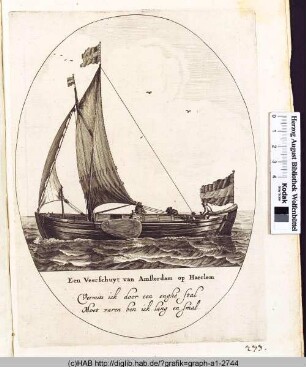 Een Veerschuyt van Amsterdam op Haerlem
Vermits ick door een enghe stal
Moet varen ben ick lang en smal.
Herzog August Bibliothek Wolfenbüttel
Kodak
(c)HAB http://diglib.hab.de/?grafik=graph-a1-2744